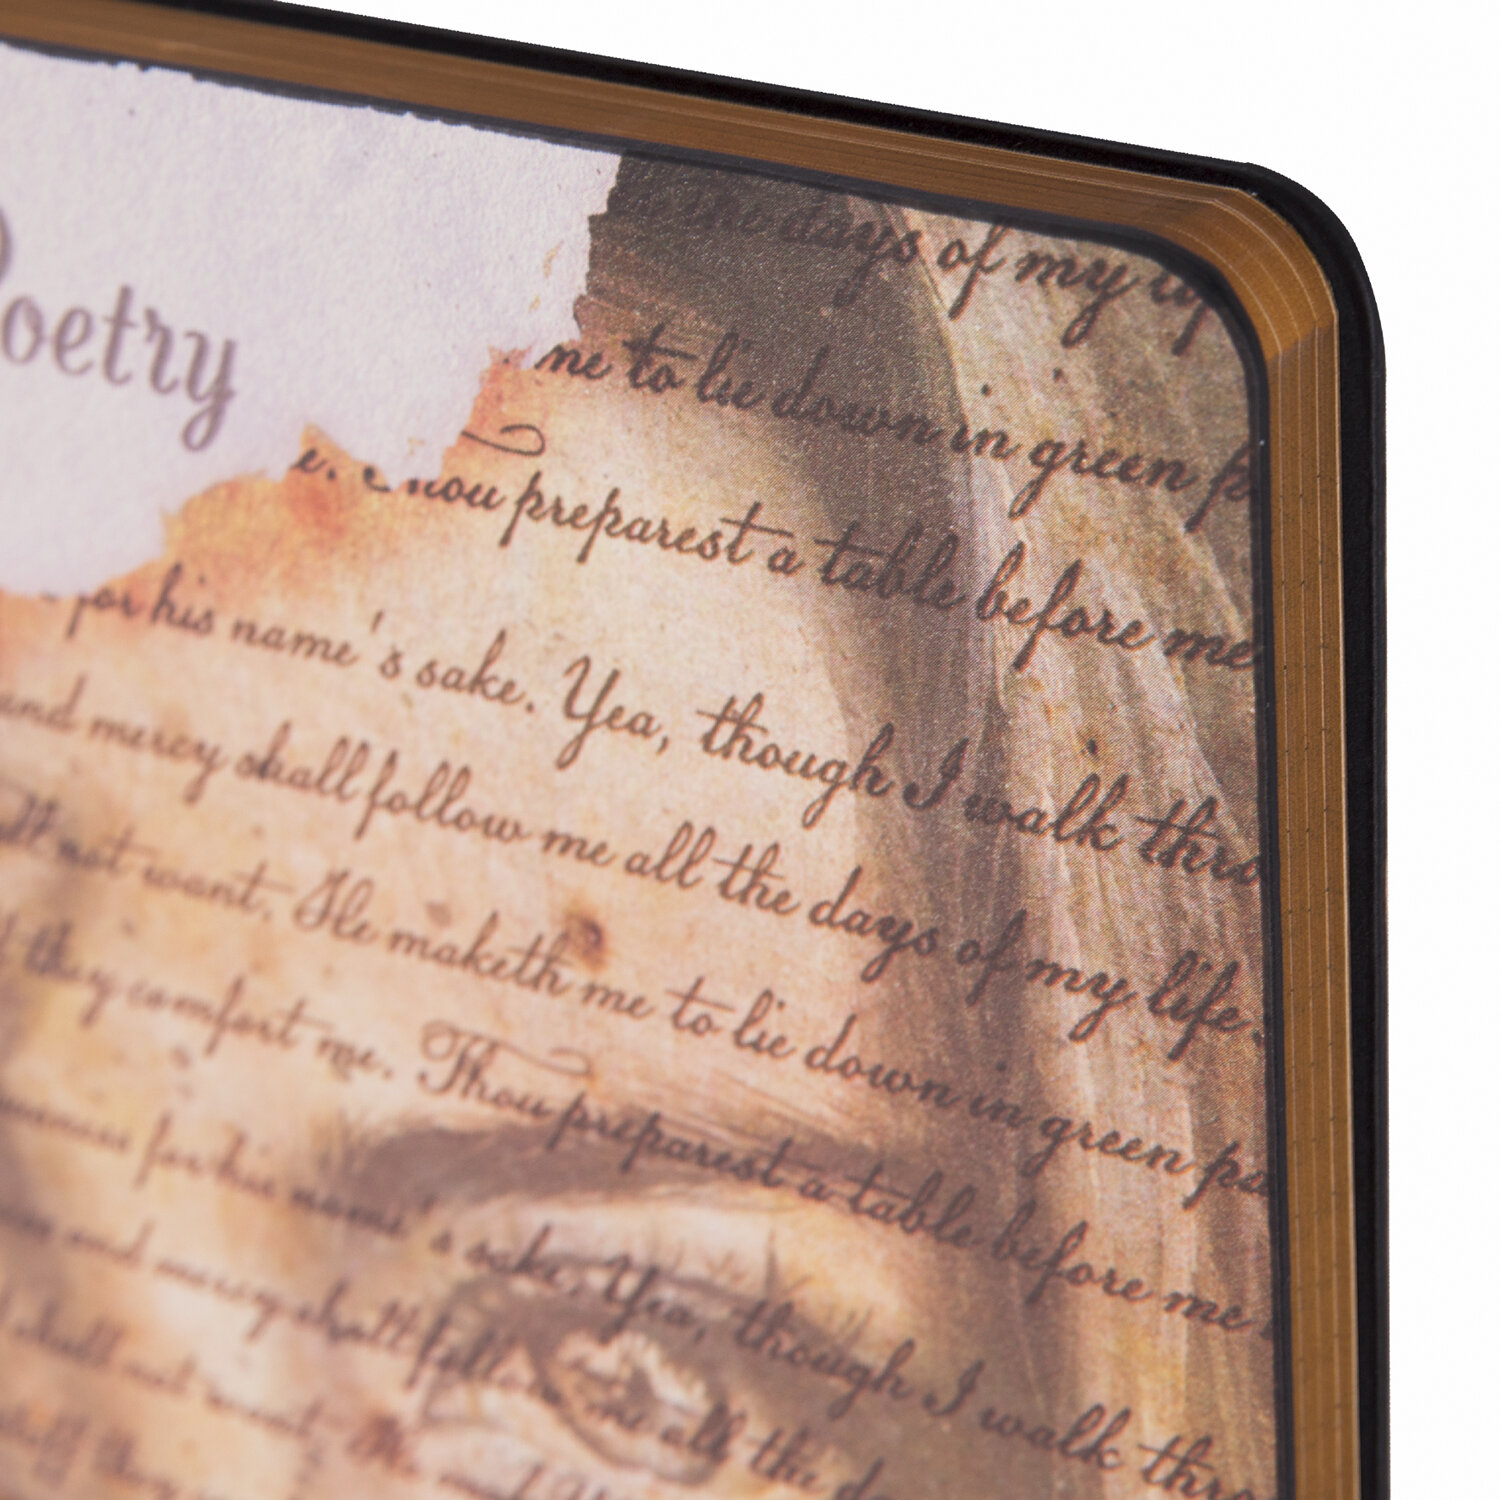 Poetry
the days of my
me to lie down in green
Thou preparest a table before me
for his name's sake. Yea, though I walk thro
and mercy shall follow me all the days of my life.
not want. He maketh me to lie down in green pa
they comfort me. Thou preparest a table before me
for his name's sake. Yea, though I walk thro
and mercy shall follow me all the da
shall not want.